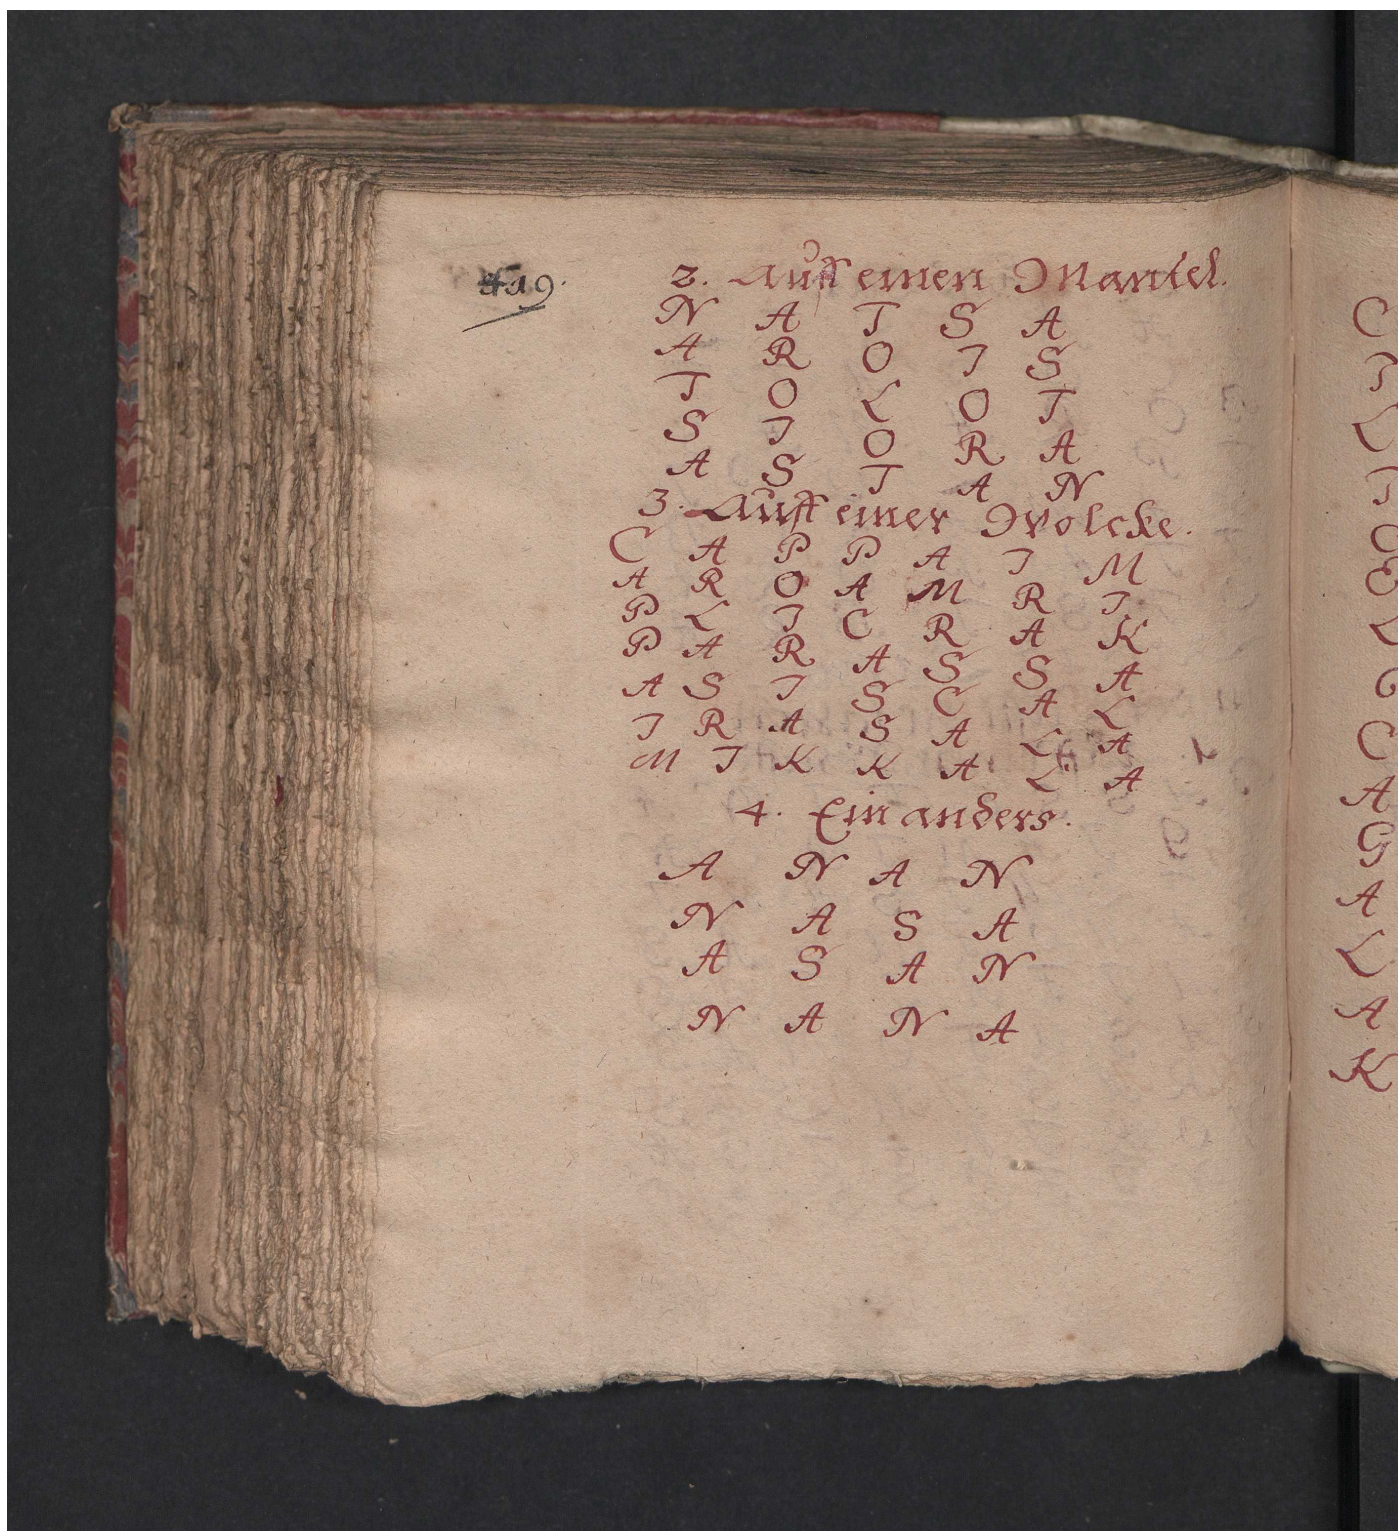 419.
2. Auff einen Mantel.
N A T S A
A R O I S
T O L O T
S I O R A
A S T A N
3. Auff einer Wolcke.
C A P P A I M
A R O A M R I
P L I C R A K
P A R A S S A
A S I S C A L
I R A S A L A
M I K K A L A
4. Ein anders.
A N A N
N A S A
A S A N
N A N A
C
I
L
I
C
E
L
G
C
A
G
A
L
A
K